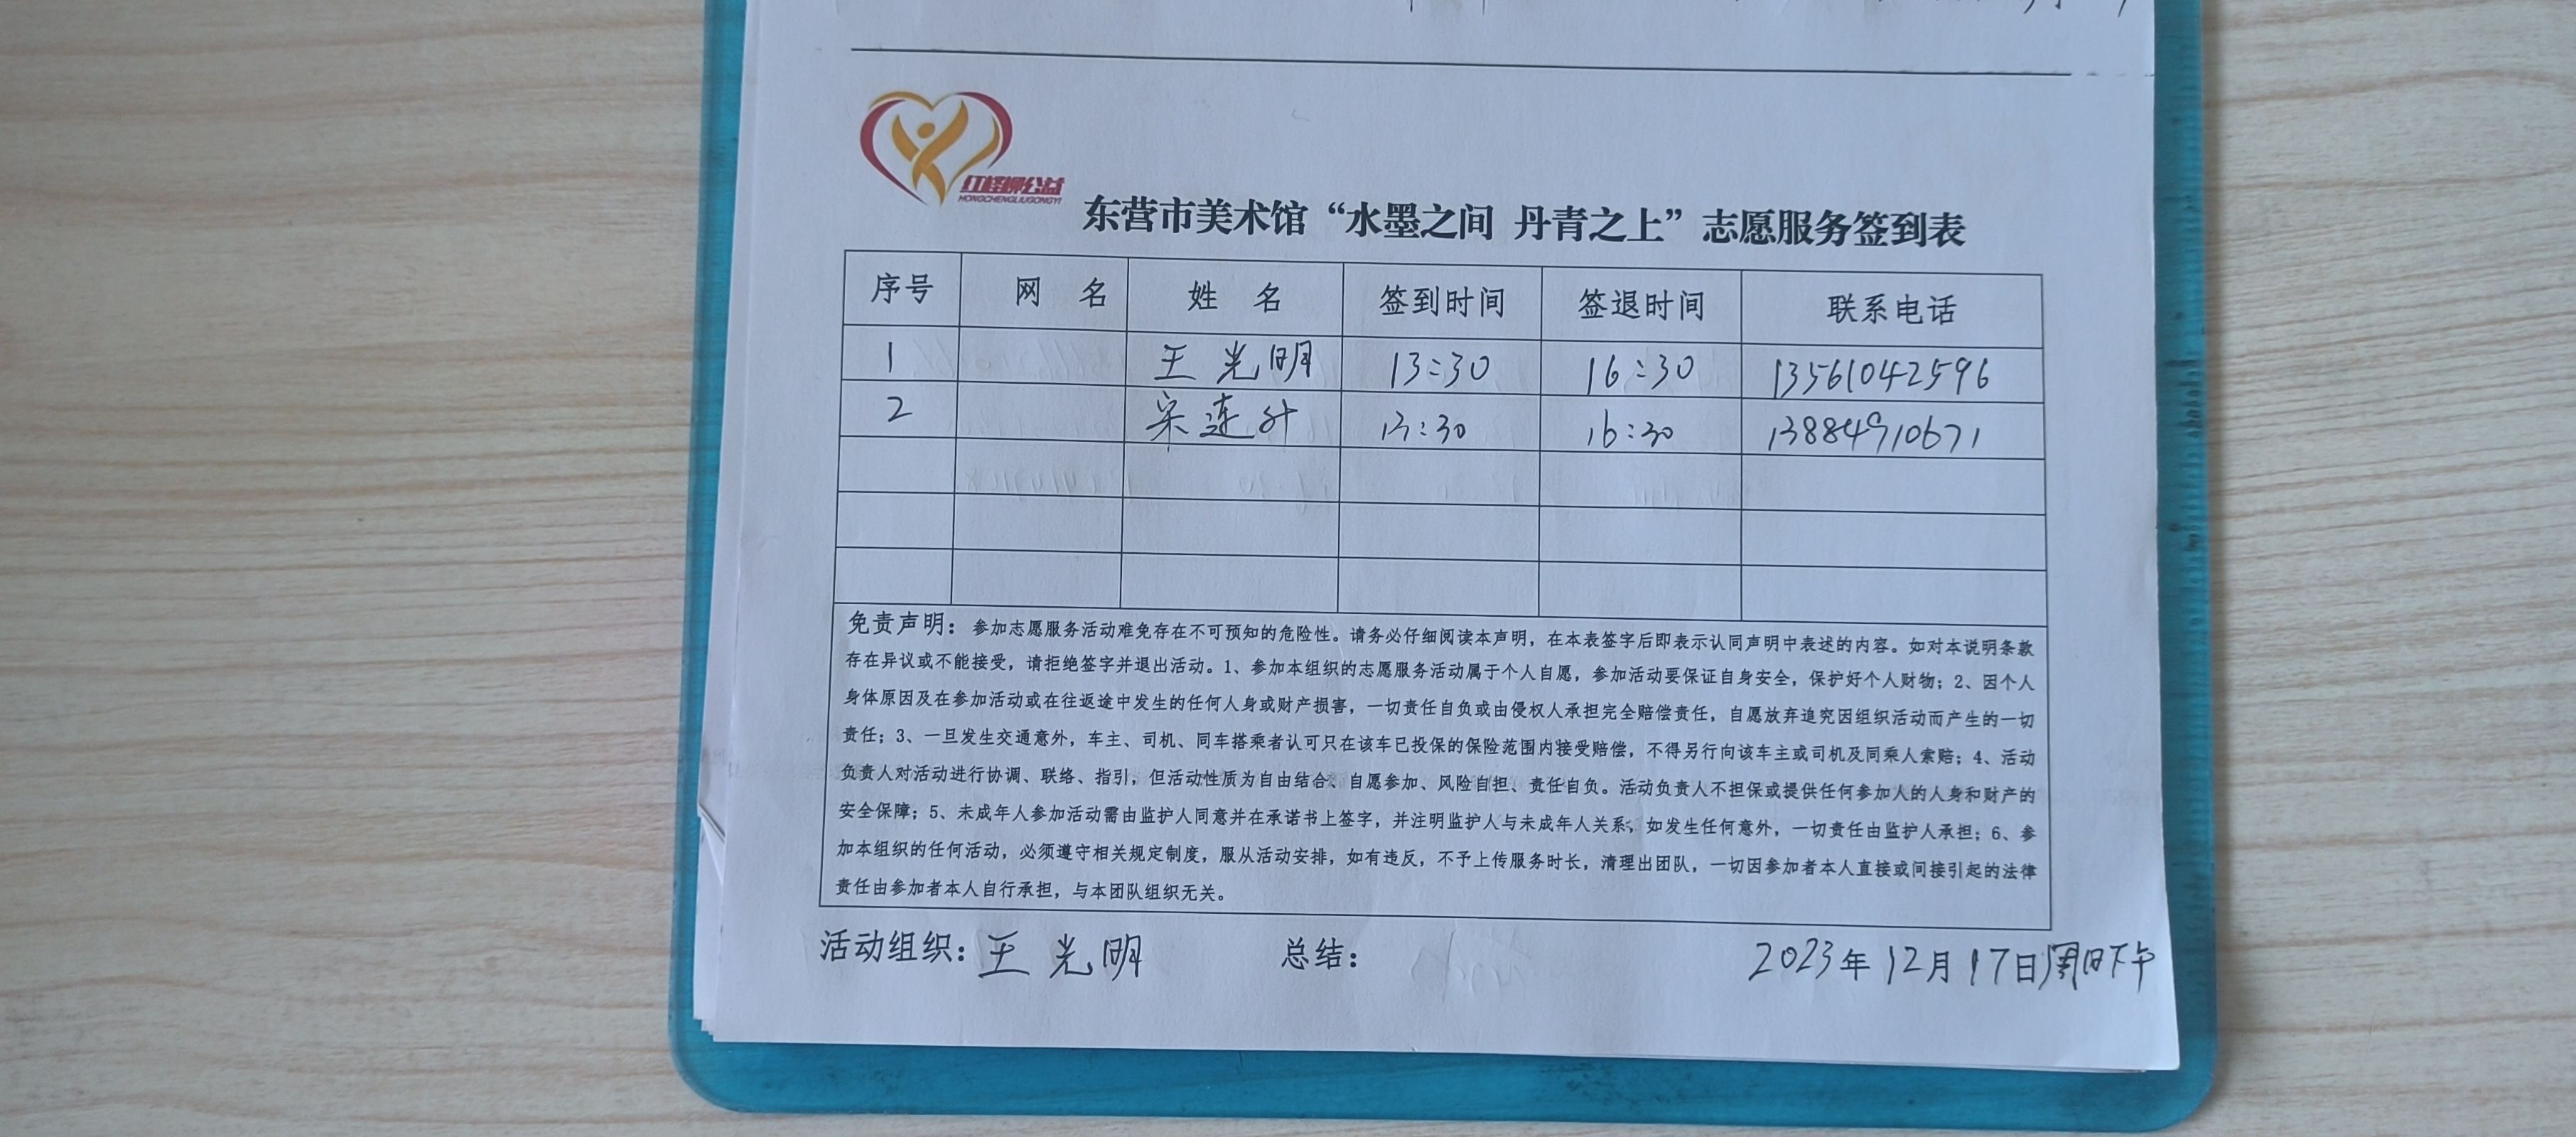 红柽柳公益
HONGCHENGLIUGONGYI
东营市美术馆“水墨之间 丹青之上”志愿服务签到表
序号 网 名 姓 名 签到时间 签退时间 联系电话
1 王光明 13:30 16:30 13561042596
2 宋莲升 13:30 16:30 13884910671
免责声明：参加志愿服务活动难免存在不可预知的危险性。请务必仔细阅读本声明，在本表签字后即表示认同声明中表述的内容。如对本说明条款
存在异议或不能接受，请拒绝签字并退出活动。1、参加本组织的志愿服务活动属于个人自愿，参加活动要保证自身安全，保护好个人财物；2、因个人
身体原因及在参加活动或在往返途中发生的任何人身或财产损害，一切责任自负或由侵权人承担完全赔偿责任，自愿放弃追究因组织活动而产生的一切
责任；3、一旦发生交通意外，车主、司机、同车搭乘者认可只在该车已投保的保险范围内接受赔偿，不得另行向该车主或司机及同乘人索赔；4、活动
负责人对活动进行协调、联络、指引，但活动性质为自由结合、自愿参加、风险自担、责任自负。活动负责人不担保或提供任何参加人的人身和财产的
安全保障；5、未成年人参加活动需由监护人同意并在承诺书上签字，并注明监护人与未成年人关系，如发生任何意外，一切责任由监护人承担；6、参
加本组织的任何活动，必须遵守相关规定制度，服从活动安排，如有违反，不予上传服务时长，清理出团队，一切因参加者本人直接或间接引起的法律
责任由参加者本人自行承担，与本团队组织无关。
活动组织：王光明 总结： 2023年12月17日周日下午